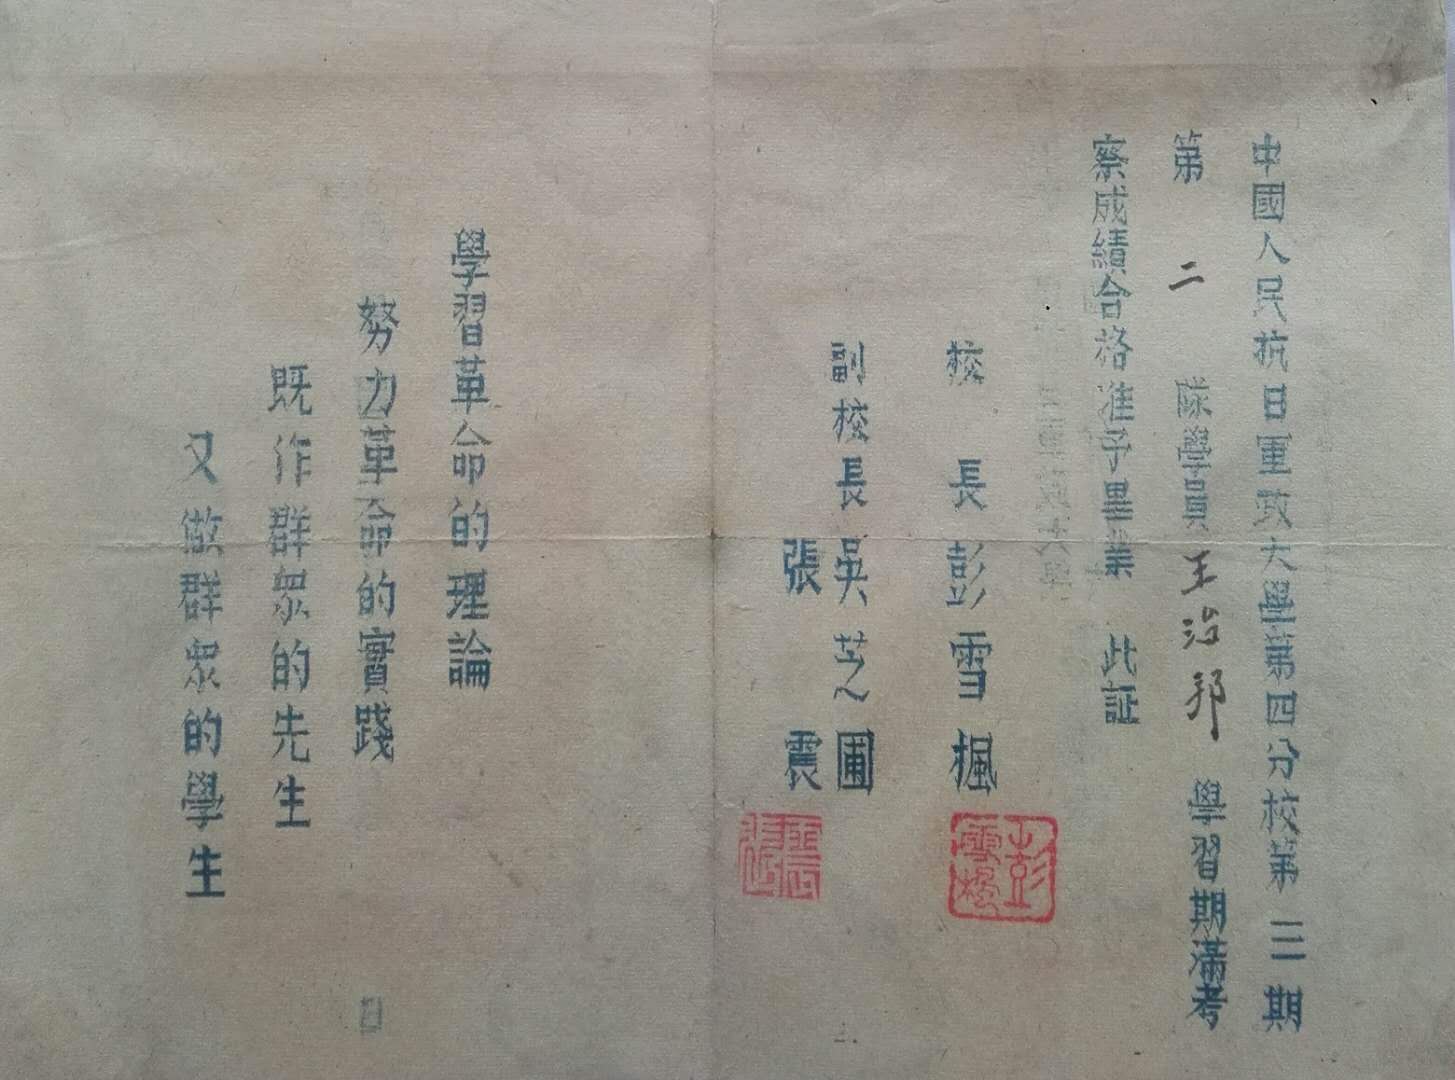 中國人民抗日軍政大學第四分校第三期
第二隊學員王治邦學習期滿考
察成績合格准予畢業 此証
校長彭雪楓
副校長吳芝圃
張震
彭雪楓
張震
學習革命的理論
努力革命的實踐
既作群眾的先生
又做群眾的學生